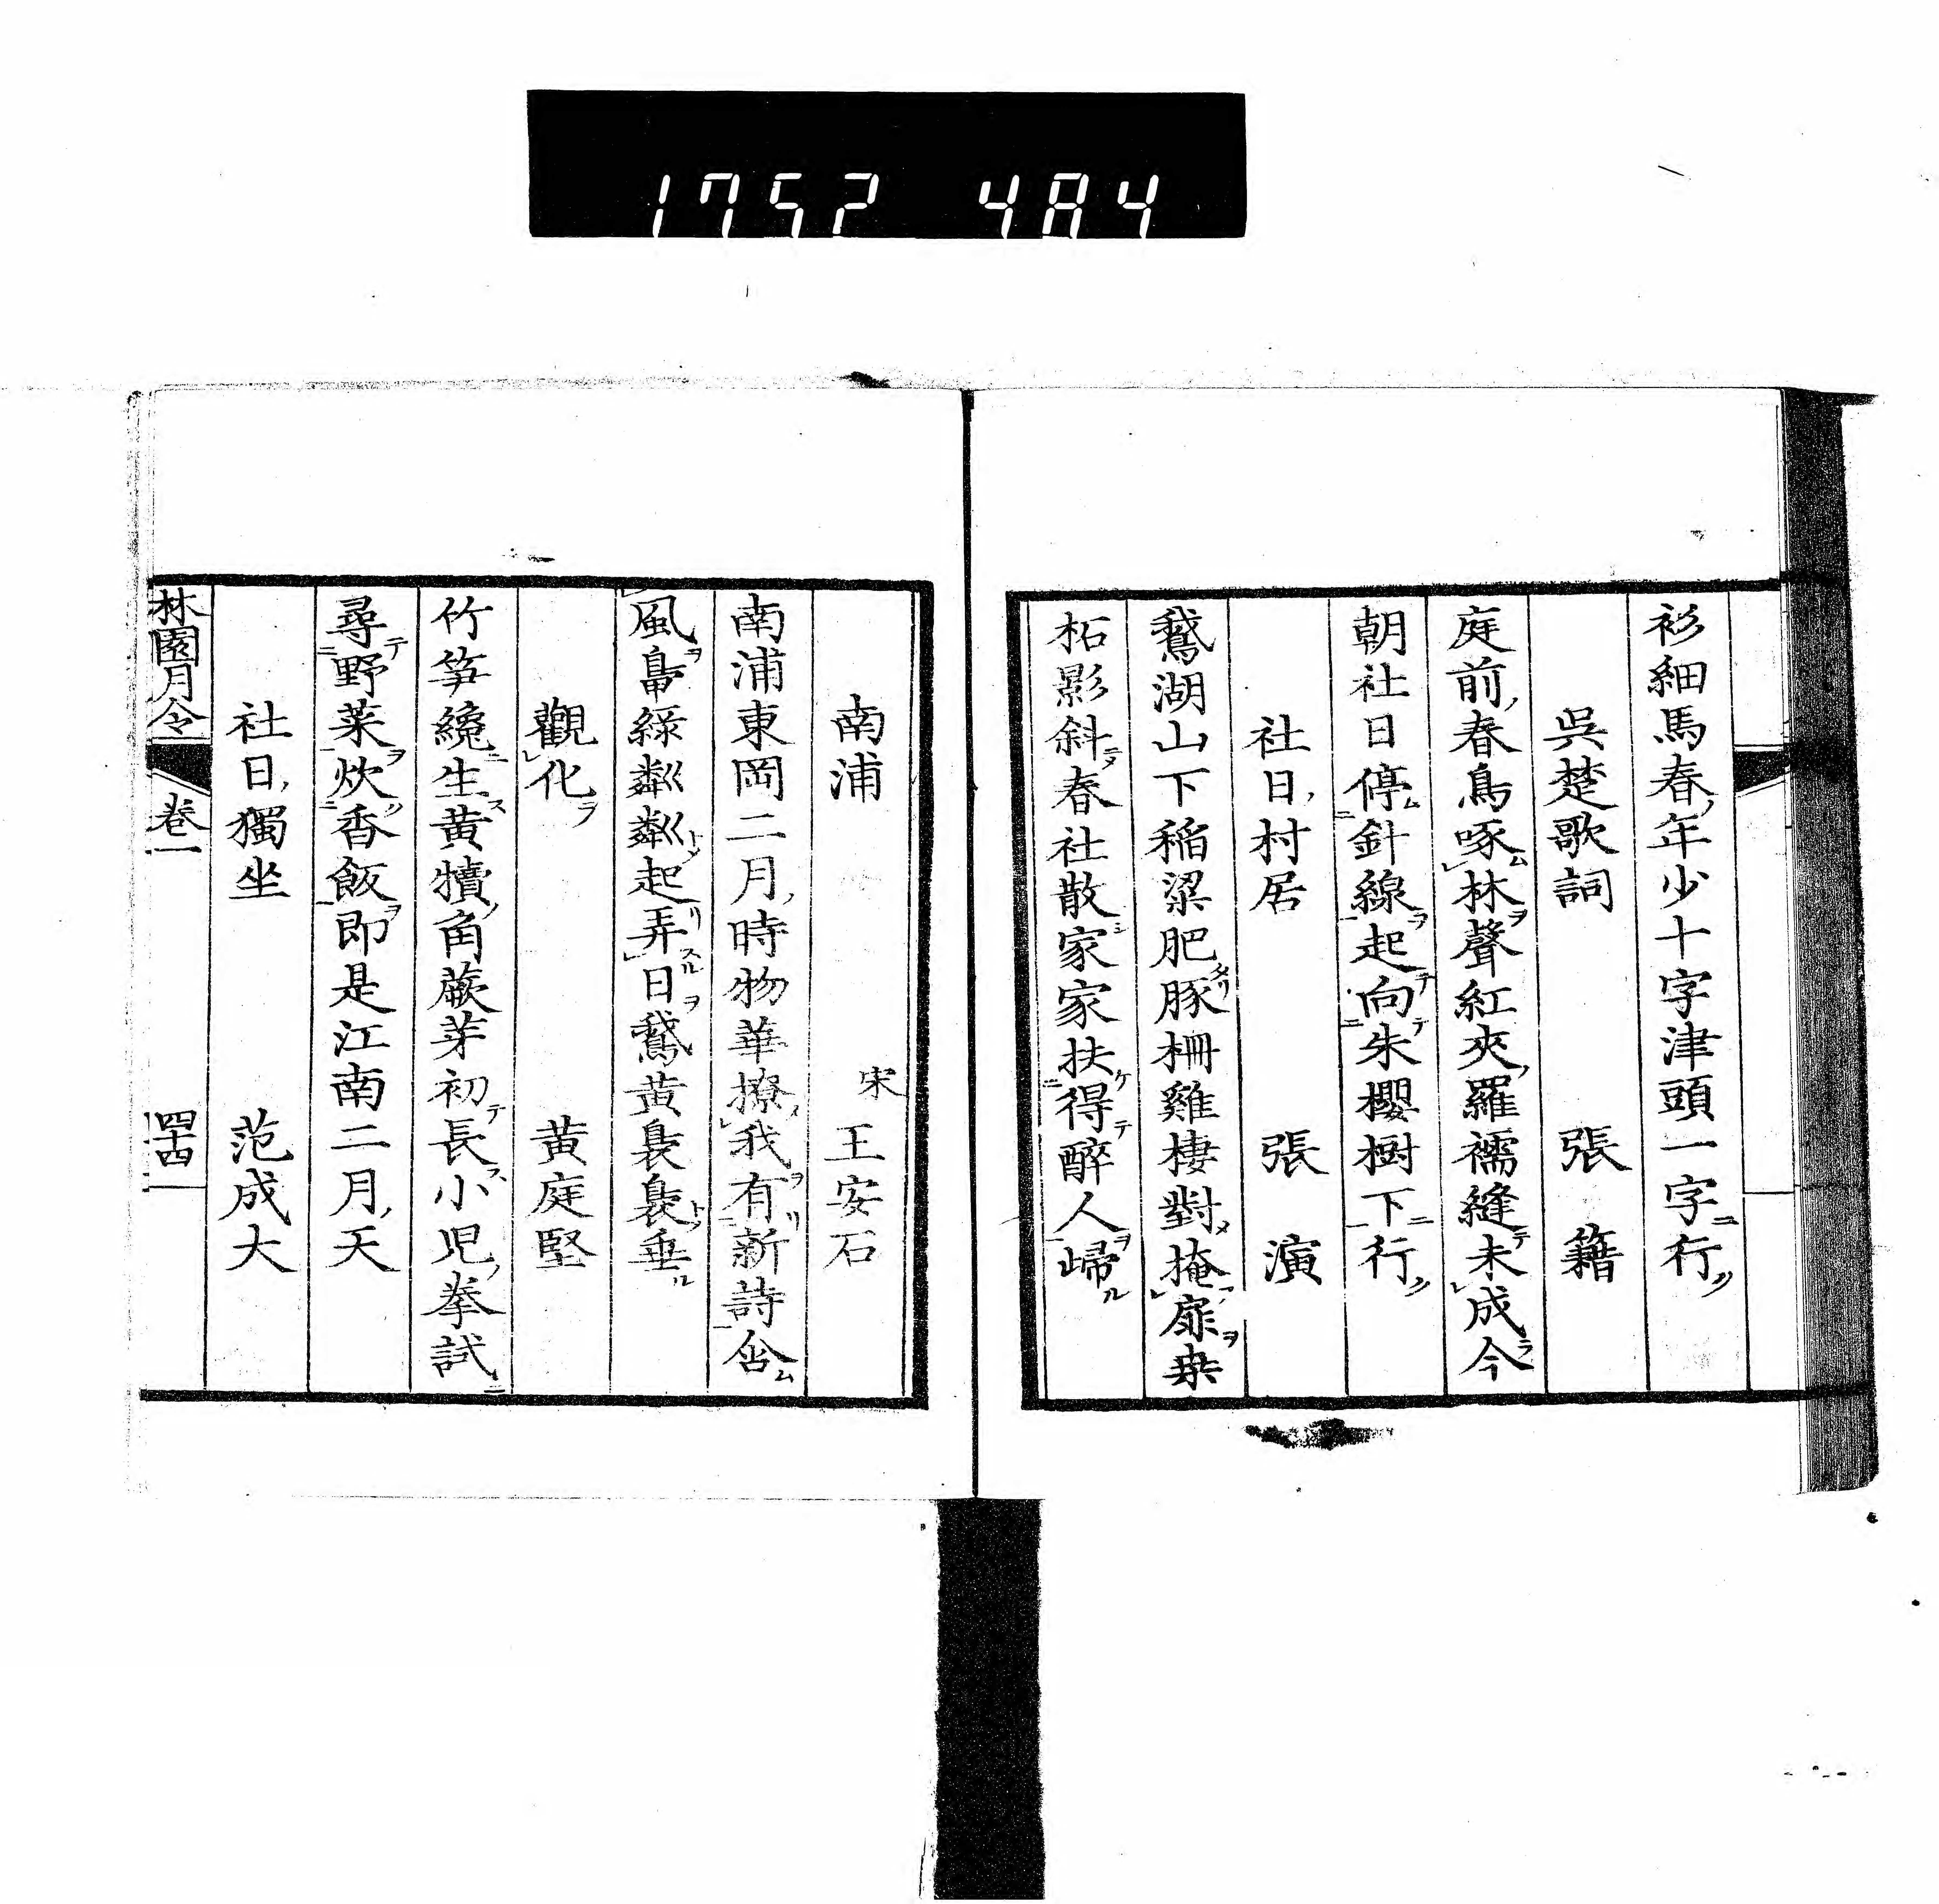 1752 484
衫細馬春年少十字津頭一字行
吳楚歌詞 張籍
庭前春鳥啄林聲紅夾羅襦縫未成今
朝社日停針線起向朱櫻樹下行
社日村居 張演
鵝湖山下稲粱肥豚柵雞棲對掩扉桒
柘影斜春社散家家扶得醉人歸
南浦 宋 王安石
南浦東岡二月時物華撩我有新詩含
風鴨綠粼粼起弄日鵝黃裊裊垂
觀化 黃庭堅
竹笋纔生黃犢角蕨芽初長小児拳試
尋野菜炊香飯即是江南二月天
社日獨坐 范成大
林園月令 卷一 四十四